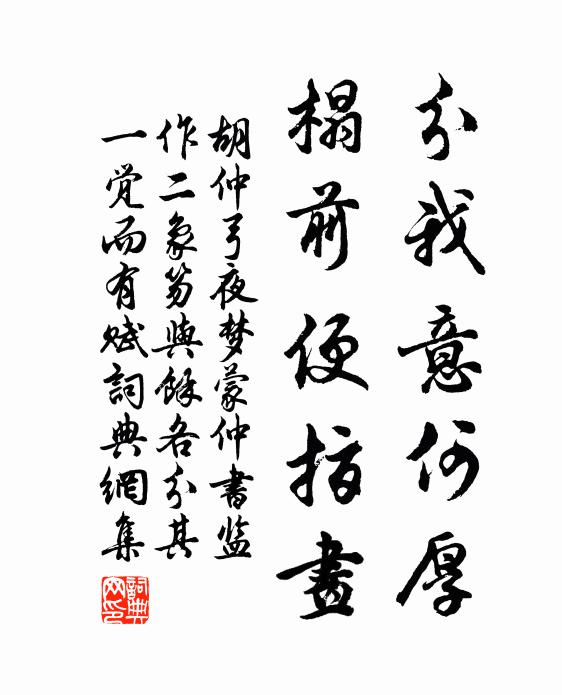 分我意何厚
榻前便指畫
胡仲弓夜梦蒙仲書监
作二象笏與餘各分其
一觉而有赋詞典網集
詞典
网印